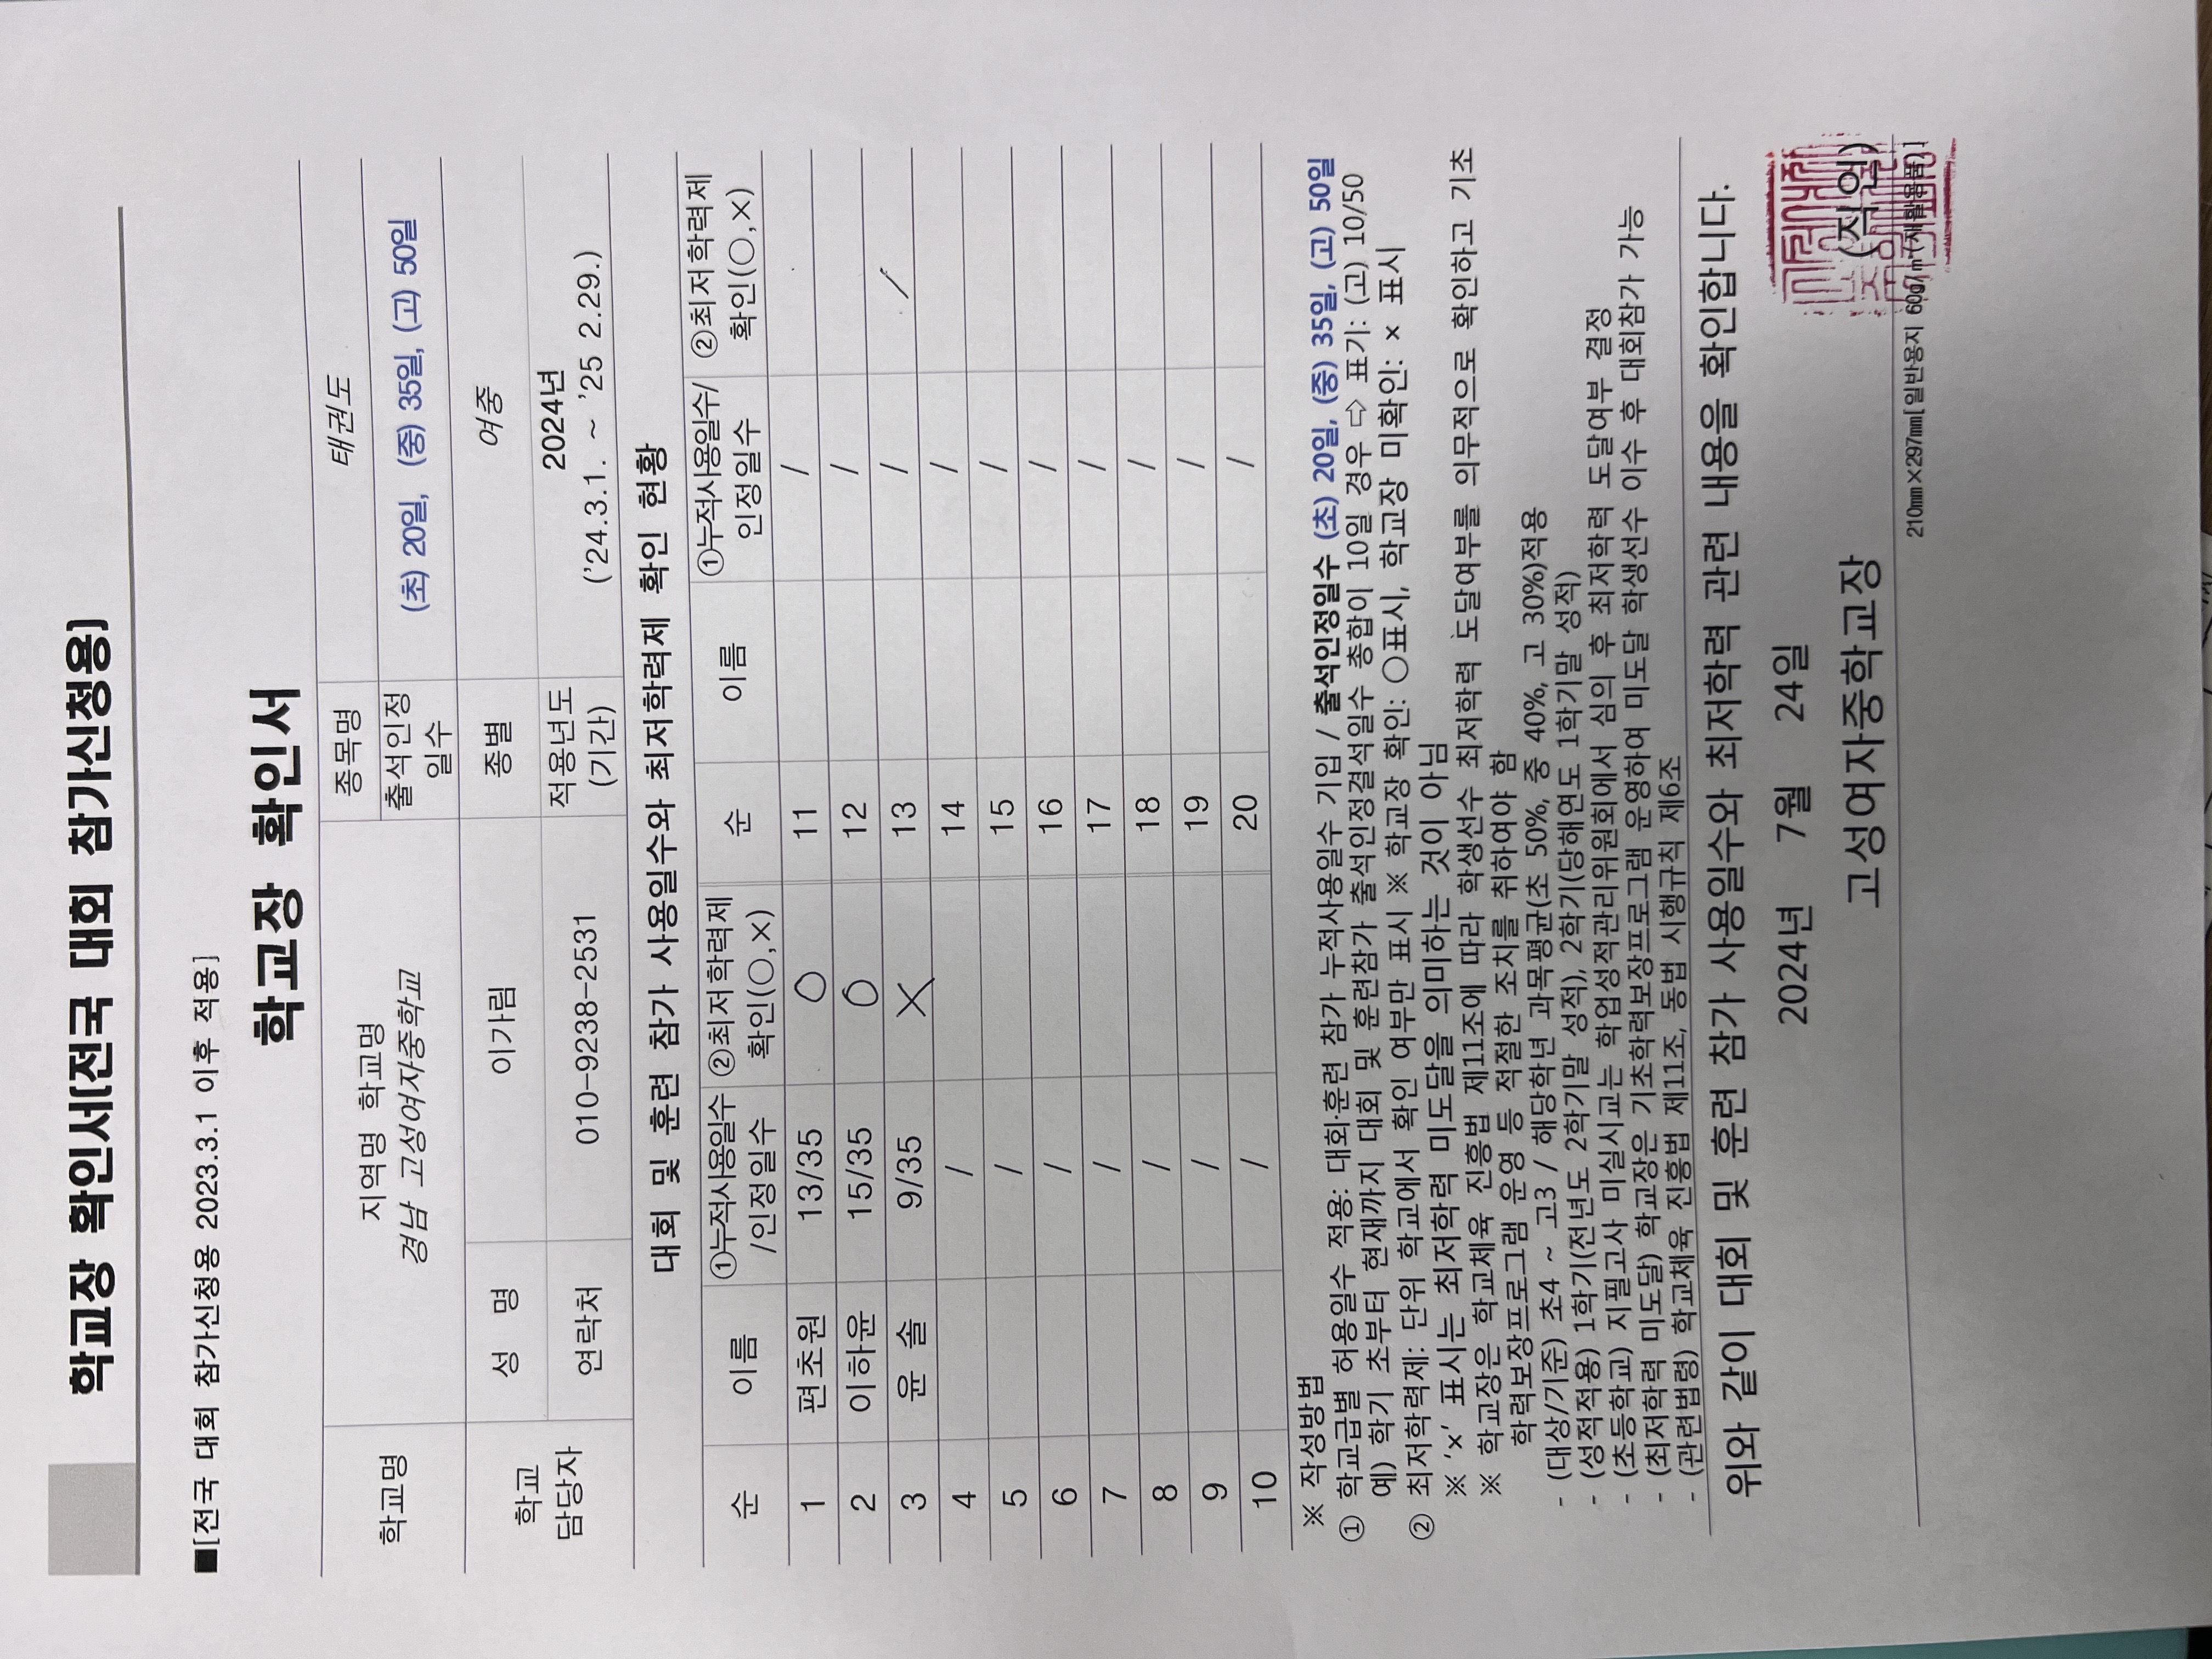 학교장 확인서[전국 대회 참가신청용]
■[전국 대회 참가신청용 2023.3.1 이후 적용]
학교장 확인서
학교명 지역명 학교명 경남 고성여자중학교 종목명 태권도
출석인정일수 (초) 20일, (중) 35일, (고) 50일
학교 담당자 성 명 이가림 종별 여중
연락처 010-9238-2531 적용년도 (기간) 2024년 ('24.3.1. ~ '25 2.29.)
대회 및 훈련 참가 사용일수와 최저학력제 확인 현황
순 이름 ①누적사용일수/인정일수 ②최저학력제 확인(○,×) 순 이름 ①누적사용일수/인정일수 ②최저학력제 확인(○,×)
1 편초원 13/35 ○ 11 /
2 이하윤 15/35 ○ 12 /
3 윤 솔 9/35 × 13 / /
4 / 14 /
5 / 15 /
6 / 16 /
7 / 17 /
8 / 18 /
9 / 19 /
10 / 20 /
※ 작성방법
① 학교급별 허용일수 적용: 대회·훈련 참가 누적사용일수 기입 / 출석인정일수 (초) 20일, (중) 35일, (고) 50일
예) 학기 초부터 현재까지 대회 및 훈련참가 출석인정결석일수 총합이 10일 경우 ⇨ 표기: (고) 10/50
② 최저학력제: 단위 학교에서 확인 여부만 표시 ※ 학교장 확인: ○표시, 학교장 미확인: × 표시
※ '×' 표시는 최저학력 미도달을 의미하는 것이 아님
※ 학교장은 학교체육 진흥법 제11조에 따라 학생선수 최저학력 도달여부를 의무적으로 확인하고 기초
학력보장프로그램 운영 등 적절한 조치를 취하여야 함
- (대상/기준) 초4 ~ 고3 / 해당학년 과목평균(초 50%, 중 40%, 고 30%)적용
- (성적적용) 1학기(전년도 2학기말 성적), 2학기(당해연도 1학기말 성적)
- (초등학교) 지필고사 미실시교는 학업성적관리위원회에서 심의 후 최저학력 도달여부 결정
- (최저학력 미도달) 학교장은 기초학력보장프로그램 운영하여 미도달 학생선수 이수 후 대회참가 가능
- (관련법령) 학교체육 진흥법 제11조, 동법 시행규칙 제6조
위와 같이 대회 및 훈련 참가 사용일수와 최저학력 관련 내용을 확인합니다.
2024년 7월 24일
고성여자중학교장 (직인)
210㎜×297㎜[일반용지 60g/㎡(재활용품)]